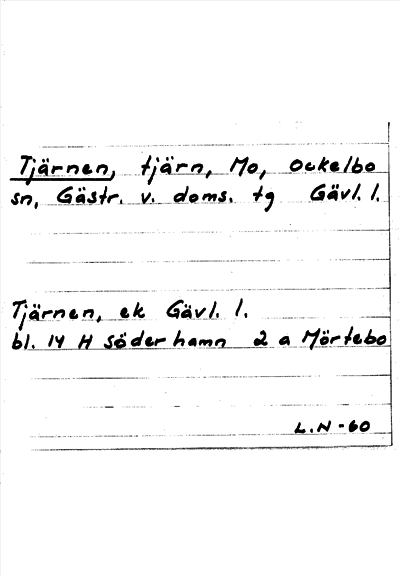 Tjärnen, tjärn, Mo, Ockelbo
sn, Gästr. v. doms. tg Gävl. l.
Tjärnen, ek Gävl. l.
bl. 14 H Söderhamn 2 a Mörtebo
L.N-60